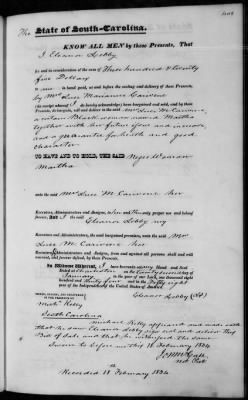 The State of South-Carolina.
KNOW ALL MEN by these Presents, That
I Eleanor Libby
for and in consideration of the sum of Three hundred & twenty
five Dollars
to me in hand paid, at and before the sealing and delivery of these Presents,
by Mrs Luce Mariane Cairvene
(the receipt whereof I do hereby acknowledge) have bargained and sold, and by these
Presents, do bargain, sell and deliver to the said Mrs Luce M. Cairvene
a certain Black woman named Martha
together with her future issue and increase
and a guarantee for health and good
character
TO HAVE AND TO HOLD, THE SAID Negro Woman
Martha
unto the said Mrs Luce M. Cairvene her
Executors, Administrators and Assigns, to her and their only proper use and behoof
for ever. And I the said Eleanor Libby my
Executors and Administrators, the said bargained premises, unto the said Mrs
Luce M. Cairvene her
Executors, Administrators and Assigns, from and against all persons shall and will
warrant, and forever defend, by these Presents.
In Witness Whereof, I have hereunto set my Hand and Seal
Dated at Charleston on the Twenty second day of
January in the year of our Lord, one thousand eight
hundred and thirty four and in the Fifty eighth
year of the Independence of the United States of America.
SIGNED, SEALED, AND DELIVERED
IN THE PRESENCE OF
Eleanor Libby (LS)
Michl Kelly
South Carolina
Michael Kelly appeared and made oath
that he saw Eleanor Libby sign seal and deliver this
Bill of Sale and that he witnessed the same
Sworn to before me this 18 February 1834
Recorded 18 February 1834